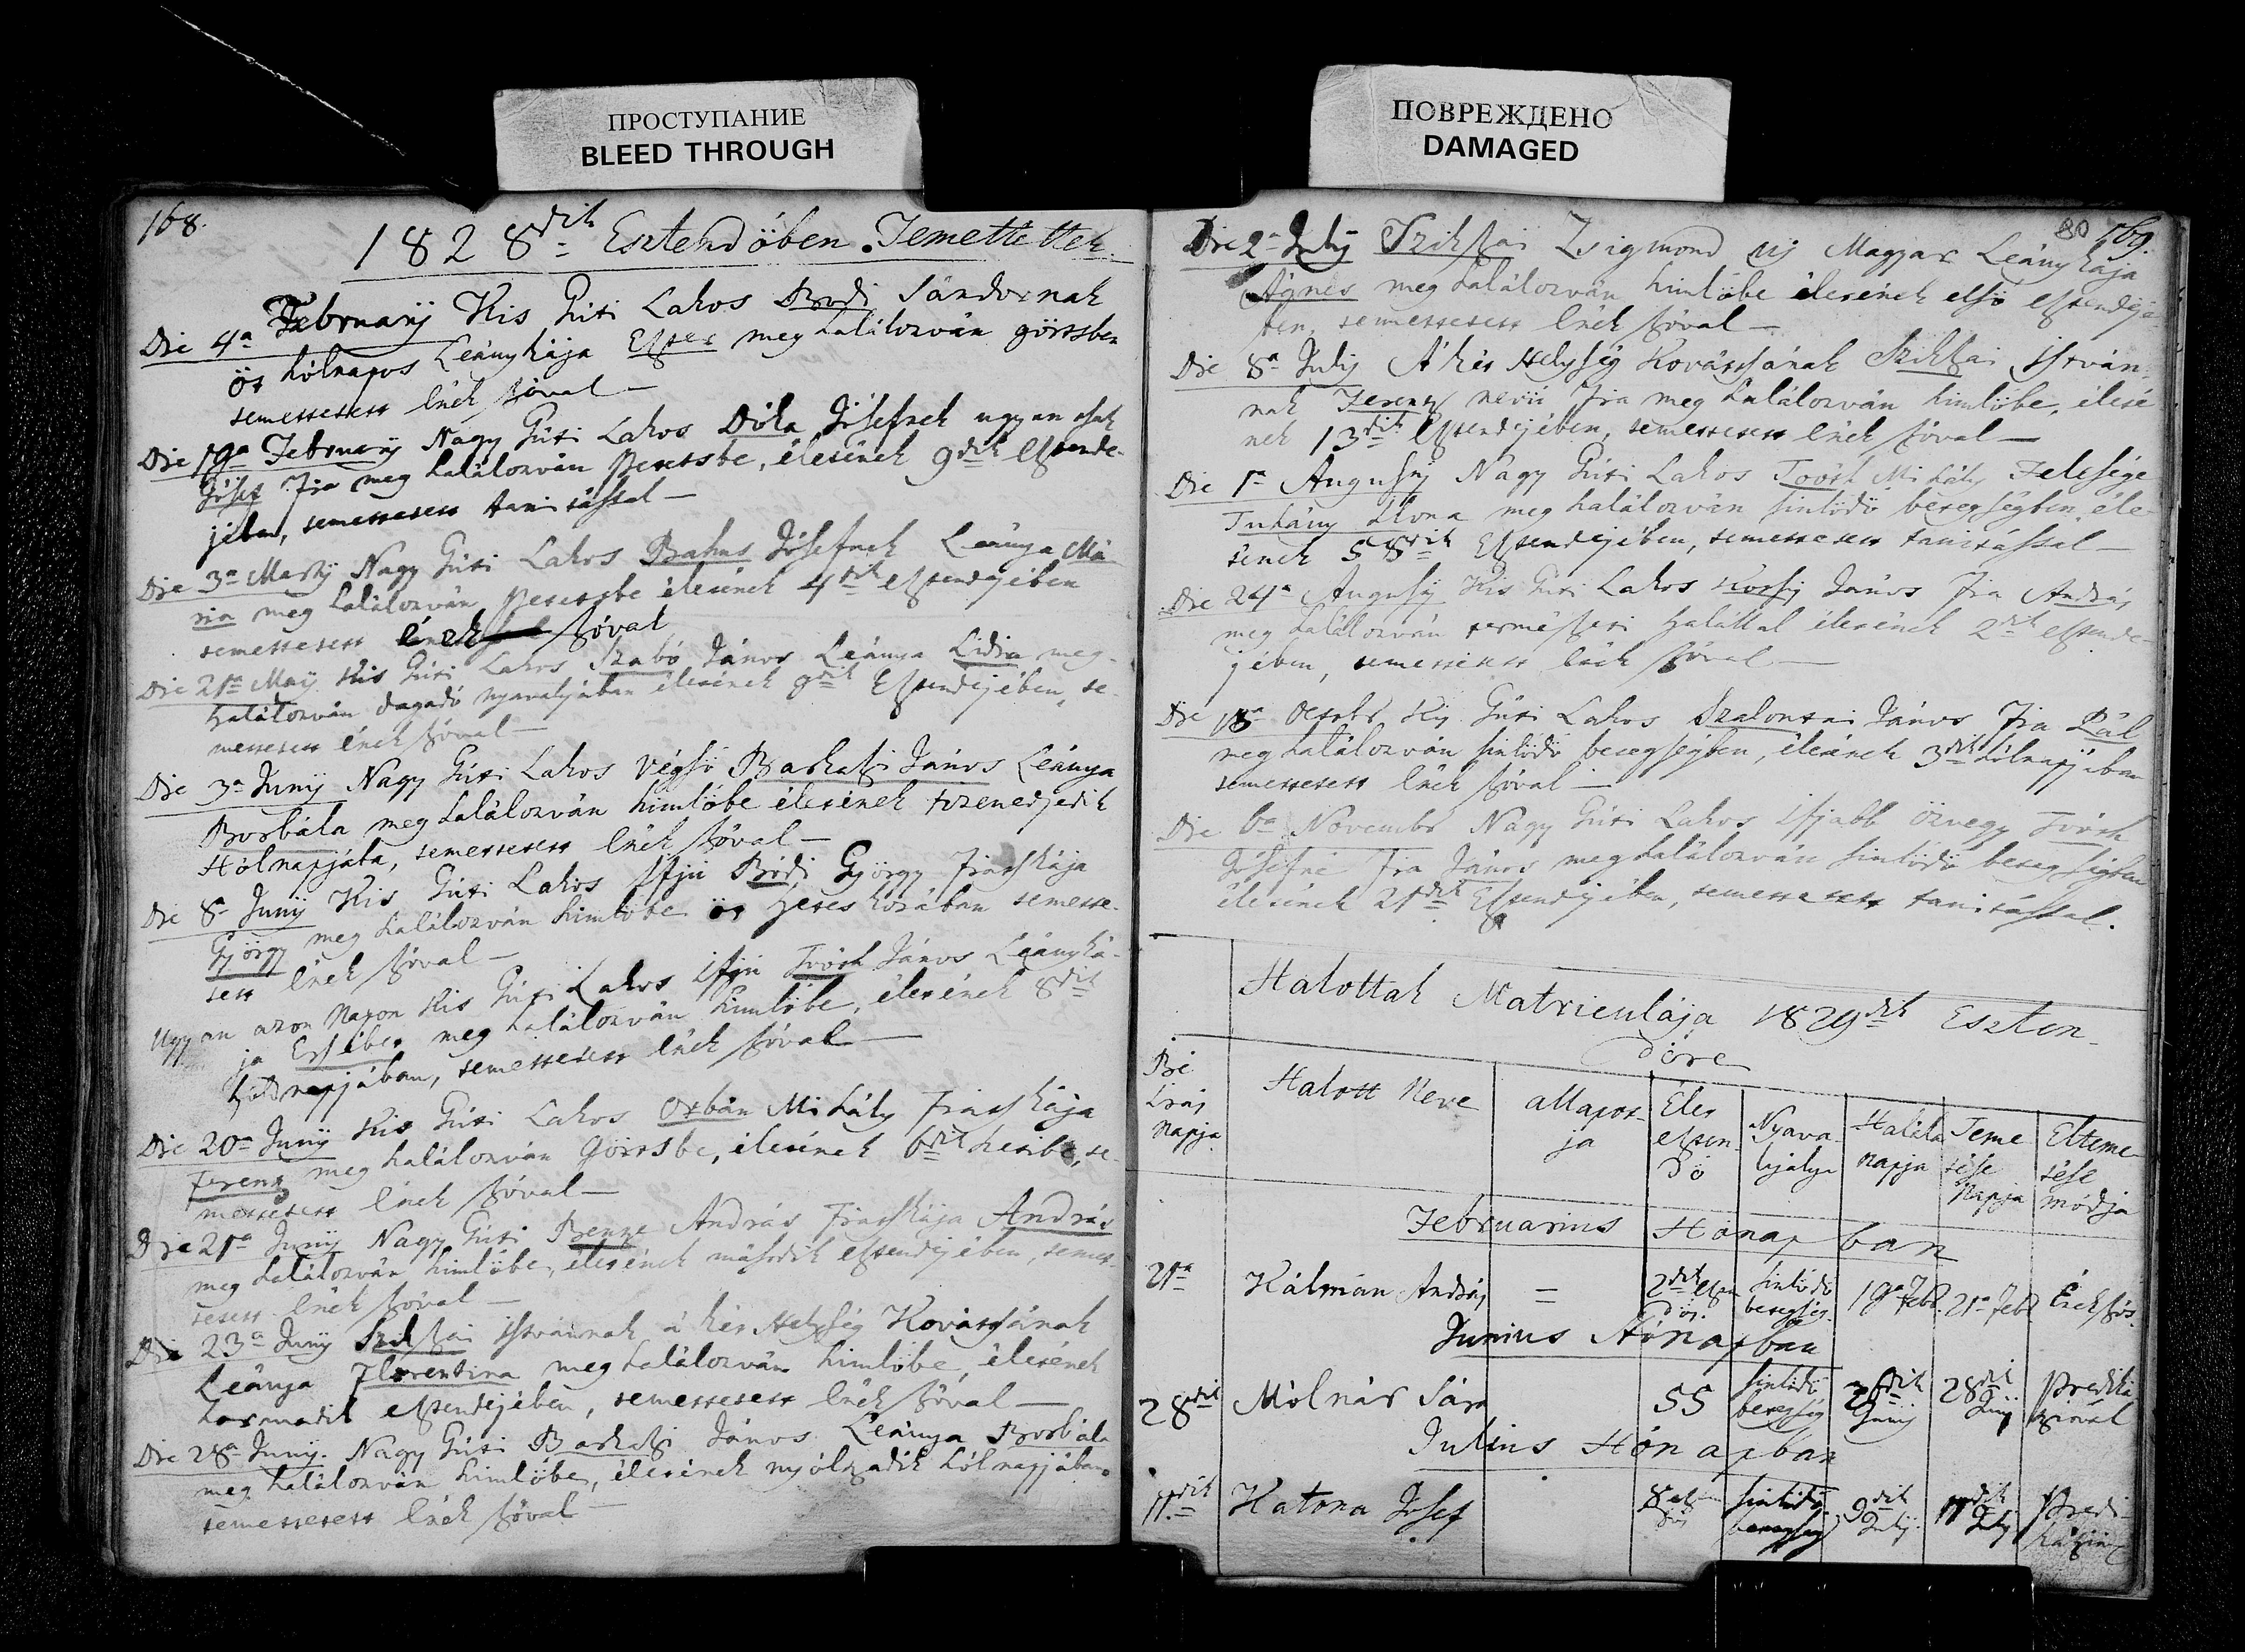 ПРОСТУПАНИЕ
BLEED THROUGH
ПОВРЕЖДЕНО
DAMAGED
168.
182 8dik Esztendöben Temettettek
Die 4a Februarÿ Kis Guti Lakos Bodi Sándornak
öt Hólnapos Leánykája Eszter meg halálozván görtsben
temettetett Ének szóval —
Die 19a Februarÿ Nagy Guti Lakos Dóka Jósefnek ugyan tsak
Jósef Fia meg halálozván Peretsbe, életének 9dik eszende-
jében, temettetett tanitással —
Die 3a Martÿ Nagy Guti Lakos Jósefnek Leánya Má-
ria meg halálozván életének 4dik esztendejében
temettetett Ének szóval
Die 21a Maÿ Kis Guti Lakos Szabó János Leánya Lidia meg-
halálozván dagadó nyavalyában életének 9dik Esztendejében, te-
mettetett Ének szóval —
Die 3a Junÿ Nagy Guti Lakos Végső Barkatzi János Leánya
Borbála meg halálozván himlöbe életének tizenedjedik
Hólnapjába, temettetett Ének szóval —
Die 8a Junÿ Kis Guti Lakos Ifjú Bódi György Fiatskája
György meg halálozván himlöbe öt hetes korában temette-
tett Ének szóval —
Ugyan azon Napon Kis Guti Lakos Ifjú Török János Leányká-
ja Ersébet meg halálozván himlöbe, életének 8dik
hólnapjában, temettetett Ének szóval —
Die 20a Junÿ Kis Guti Lakos Orbán Mihály Fiatskája
Ferentz meg halálozván Görtsbe, életének 6dik hetibe, te-
mettetett Ének szóval —
Die 21a Junÿ Nagy Guti Bentze András Fiatskája András
meg halálozván himlöbe, életének második esztendejében, temet-
tetett Ének szóval —
Die 23a Junÿ Szikszai Istvánnak a két Helység Kovátsának
Leánya Florentina meg halálozván himlöbe, életének
harmadik esztendejében, temettetett Ének szóval —
Die 28a Junÿ. Nagy Guti Barkatzi János Leánya Borbála
meg halálozván himlöbe, életének nyóltzadik hólnapjában
temettetett Ének szóval —
80 169.
Die 2a Julÿ Szikszai Zsigmond Uj Magyar Leánykája
Ágnes meg halálozván himlöbe életének elsö esztendejé-
ben, temettetett Ének szóval —
Die 8a Julÿ A két Helység Kovátsának Szikszai István-
nak Ferentz nevü Fia meg halálozván himlöbe, életé-
nek 13dik Esztendejében, temettetett Ének szóval —
Die 1a Augustÿ Nagy Guti Lakos Török Mihály Felesége
Juhány Ilona meg halálozván sinlödö betegségben, éle-
tének 58dik Esztendejében, temettetett tanitással —
Die 24a Augustÿ Kis Guti Lakos János Fia András
meg halálozván természeti halállal életének 2dik eszende-
jében, temettetett Ének szóval —
Die 18a Octobr Kis Guti Lakos Szalontai János Fia Pál
meg halálozván sinlödö betegségben, életének 3dik hólnapjában
temettetett Ének szóval —
Die 6a Novembr Nagy Guti Lakos Ifjabb Özvegy Török
Jósefné Fia János meg halálozván sinlödö betegségben
életének 21dik Esztendejében, temettetett tanitással.
Halottak Matriculája 1829dik Eszten-
döre
Bé irás Napja
Halott Neve
állapot-ja
Élet eszten-dö
Nyava-lyálya
Halála napja
Teme tése Napja
Elteme tése módja
Februarius Hónap ban
21a Kálmán András = 2dik eszt. dös. sinlödö betegség. 19a Febr. 21a Febr Ének szós.
Junius Hónapban
28dik Mólnár Sára 55 sinlödö betegség 26dik Junÿ 28dik Junÿ Prediká tzióval
Julius Hónapban
11.dik Katona Josef 8 sinlödö betegség 9dik Julÿ. 11dik Julÿ Predi-